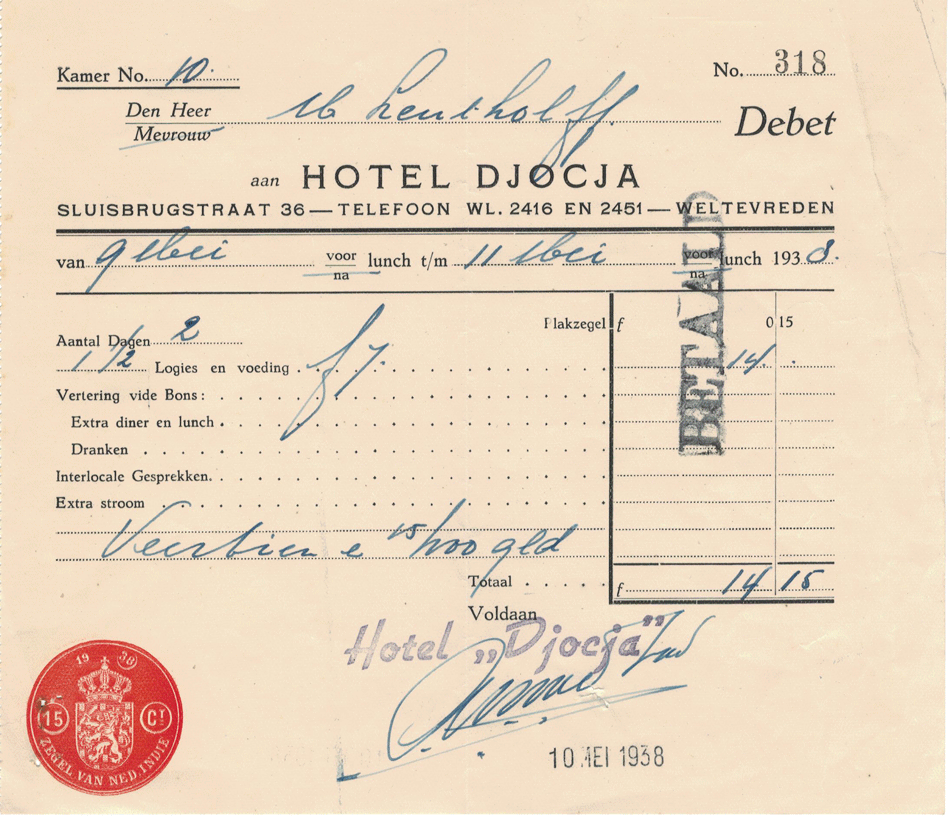 Kamer No. 10. No. 318
Den Heer
Mevrouw
Debet
aan HOTEL DJOCJA
SLUISBRUGSTRAAT 36 — TELEFOON WL. 2416 EN 2451 — WELTEVREDEN
van 9 Mei voor na lunch t/m 11 Mei voor na lunch 1938.
BETAALD
Plakzegel f 0 15
Aantal Dagen 2
1 1/2 Logies en voeding f 7. 14.
Vertering vide Bons:
Extra diner en lunch
Dranken
Interlocale Gesprekken.
Extra stroom
Veertien e 15/100 gld
Totaal f 14 15
Voldaan
Hotel „Djocja”
10 MEI 1938
1938
15 CT
ZEGEL VAN NED. INDIE